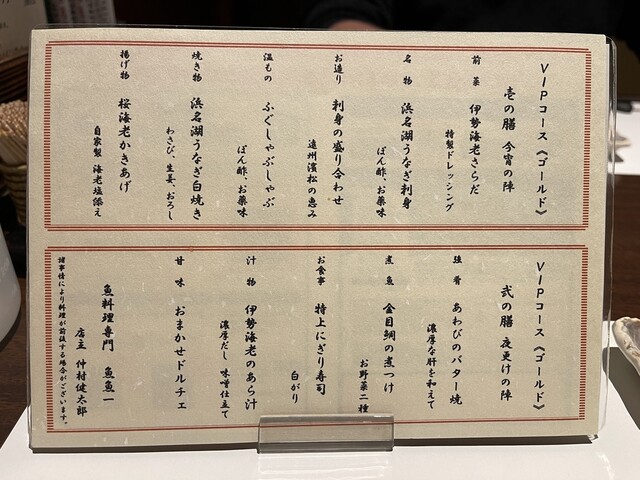 VIPコース《ゴールド》
壱の膳 今宵の陣
前菜 伊勢海老さらだ
特製ドレッシング
名物 浜名湖うなぎ刺身
ぽん酢、お薬味
お造り 刺身の盛り合わせ
遠州濱松の恵み
温もの ふぐしゃぶしゃぶ
ぽん酢、お薬味
焼き物 浜名湖うなぎ白焼き
わさび、生姜、おろし
揚げ物 桜海老かきあげ
自家製 海老塩添え
VIPコース《ゴールド》
弐の膳 夜更けの陣
強肴 あわびのバター焼
濃厚な肝を和えて
煮魚 金目鯛の煮つけ
お野菜二種
お食事 特上にぎり寿司
白がり
汁物 伊勢海老のあら汁
濃厚だし 味噌仕立て
甘味 おまかせドルチェ
魚料理専門 魚魚一
店主 仲村健太郎
諸事情により料理が前後する場合がございます。